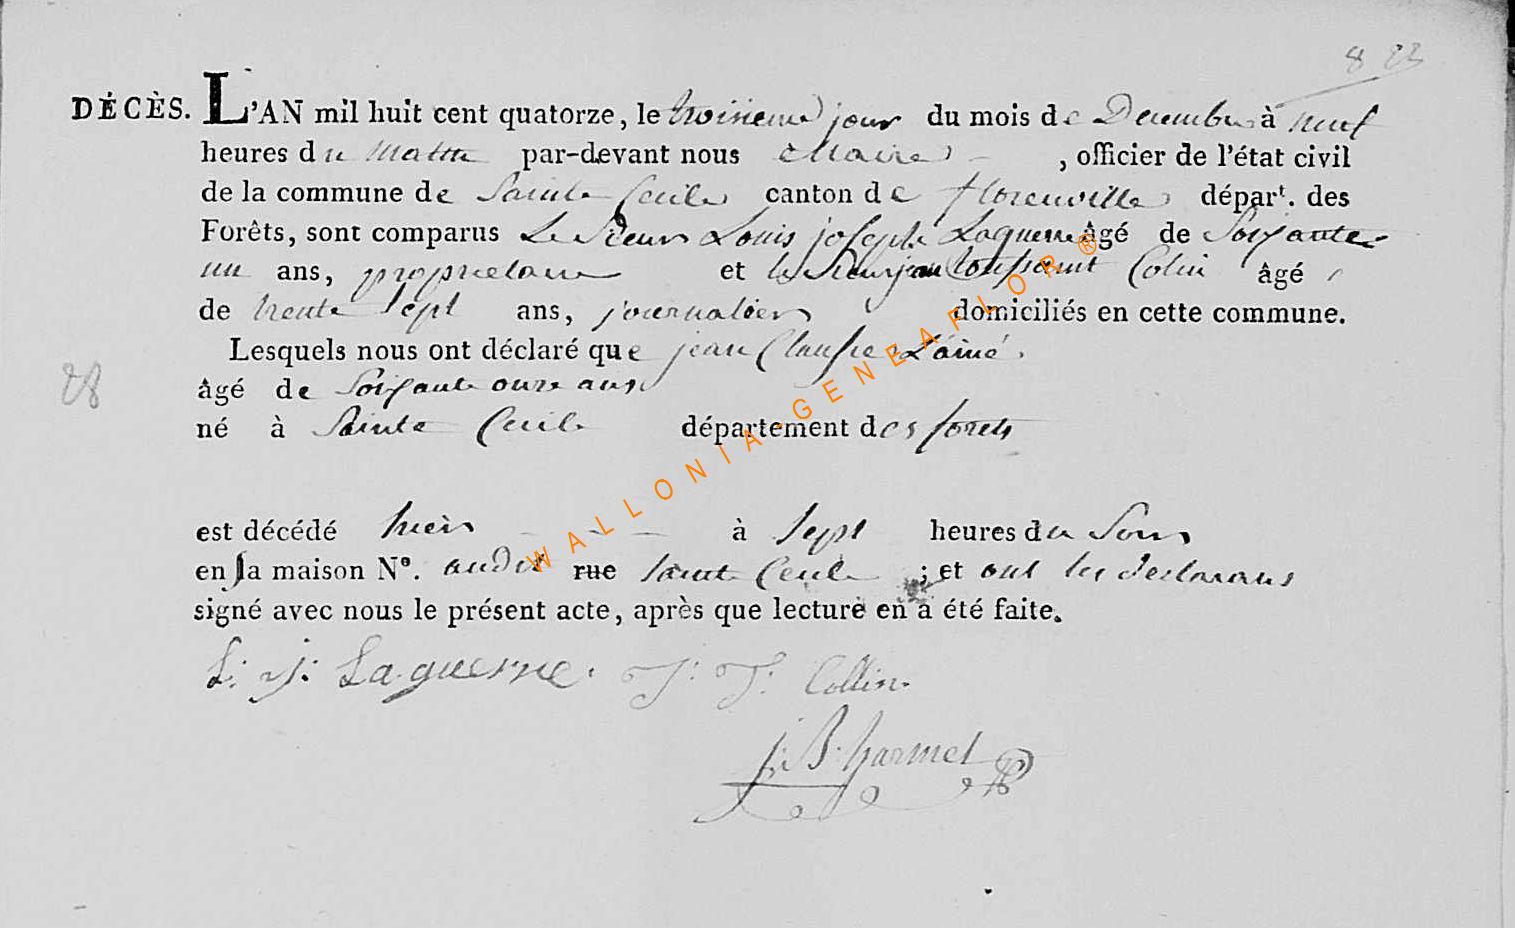 8 23
DÉCÈS. L'AN mil huit cent quatorze, le troisieme jour du mois de Decembre à neuf
heures du Matin par-devant nous Maire, officier de l'état civil
de la commune de Sainte Cecile canton de florenville dépar<sup>t</sup>. des
Forêts, sont comparus Le Sieur Louis joseph Laguerre âgé de Soixante
un ans, proprietaire et le Sieur jean toussaint Colin âgé
de trente Sept ans, journalier domiciliés en cette commune.
Lesquels nous ont déclaré que jean Lainé
28
âgé de Soixante onze ans
né à Sainte Cecile département des forets
est décédé hier à Sept heures du Soir
en la maison Nº. audit rue Sainte Cecile ; et ont les declarans
signé avec nous le présent acte, après que lecture en a été faite.
L: J: Laguerre. J: T: Collin.
j: B: harmel
WALLONIA-GENEAFLOR®